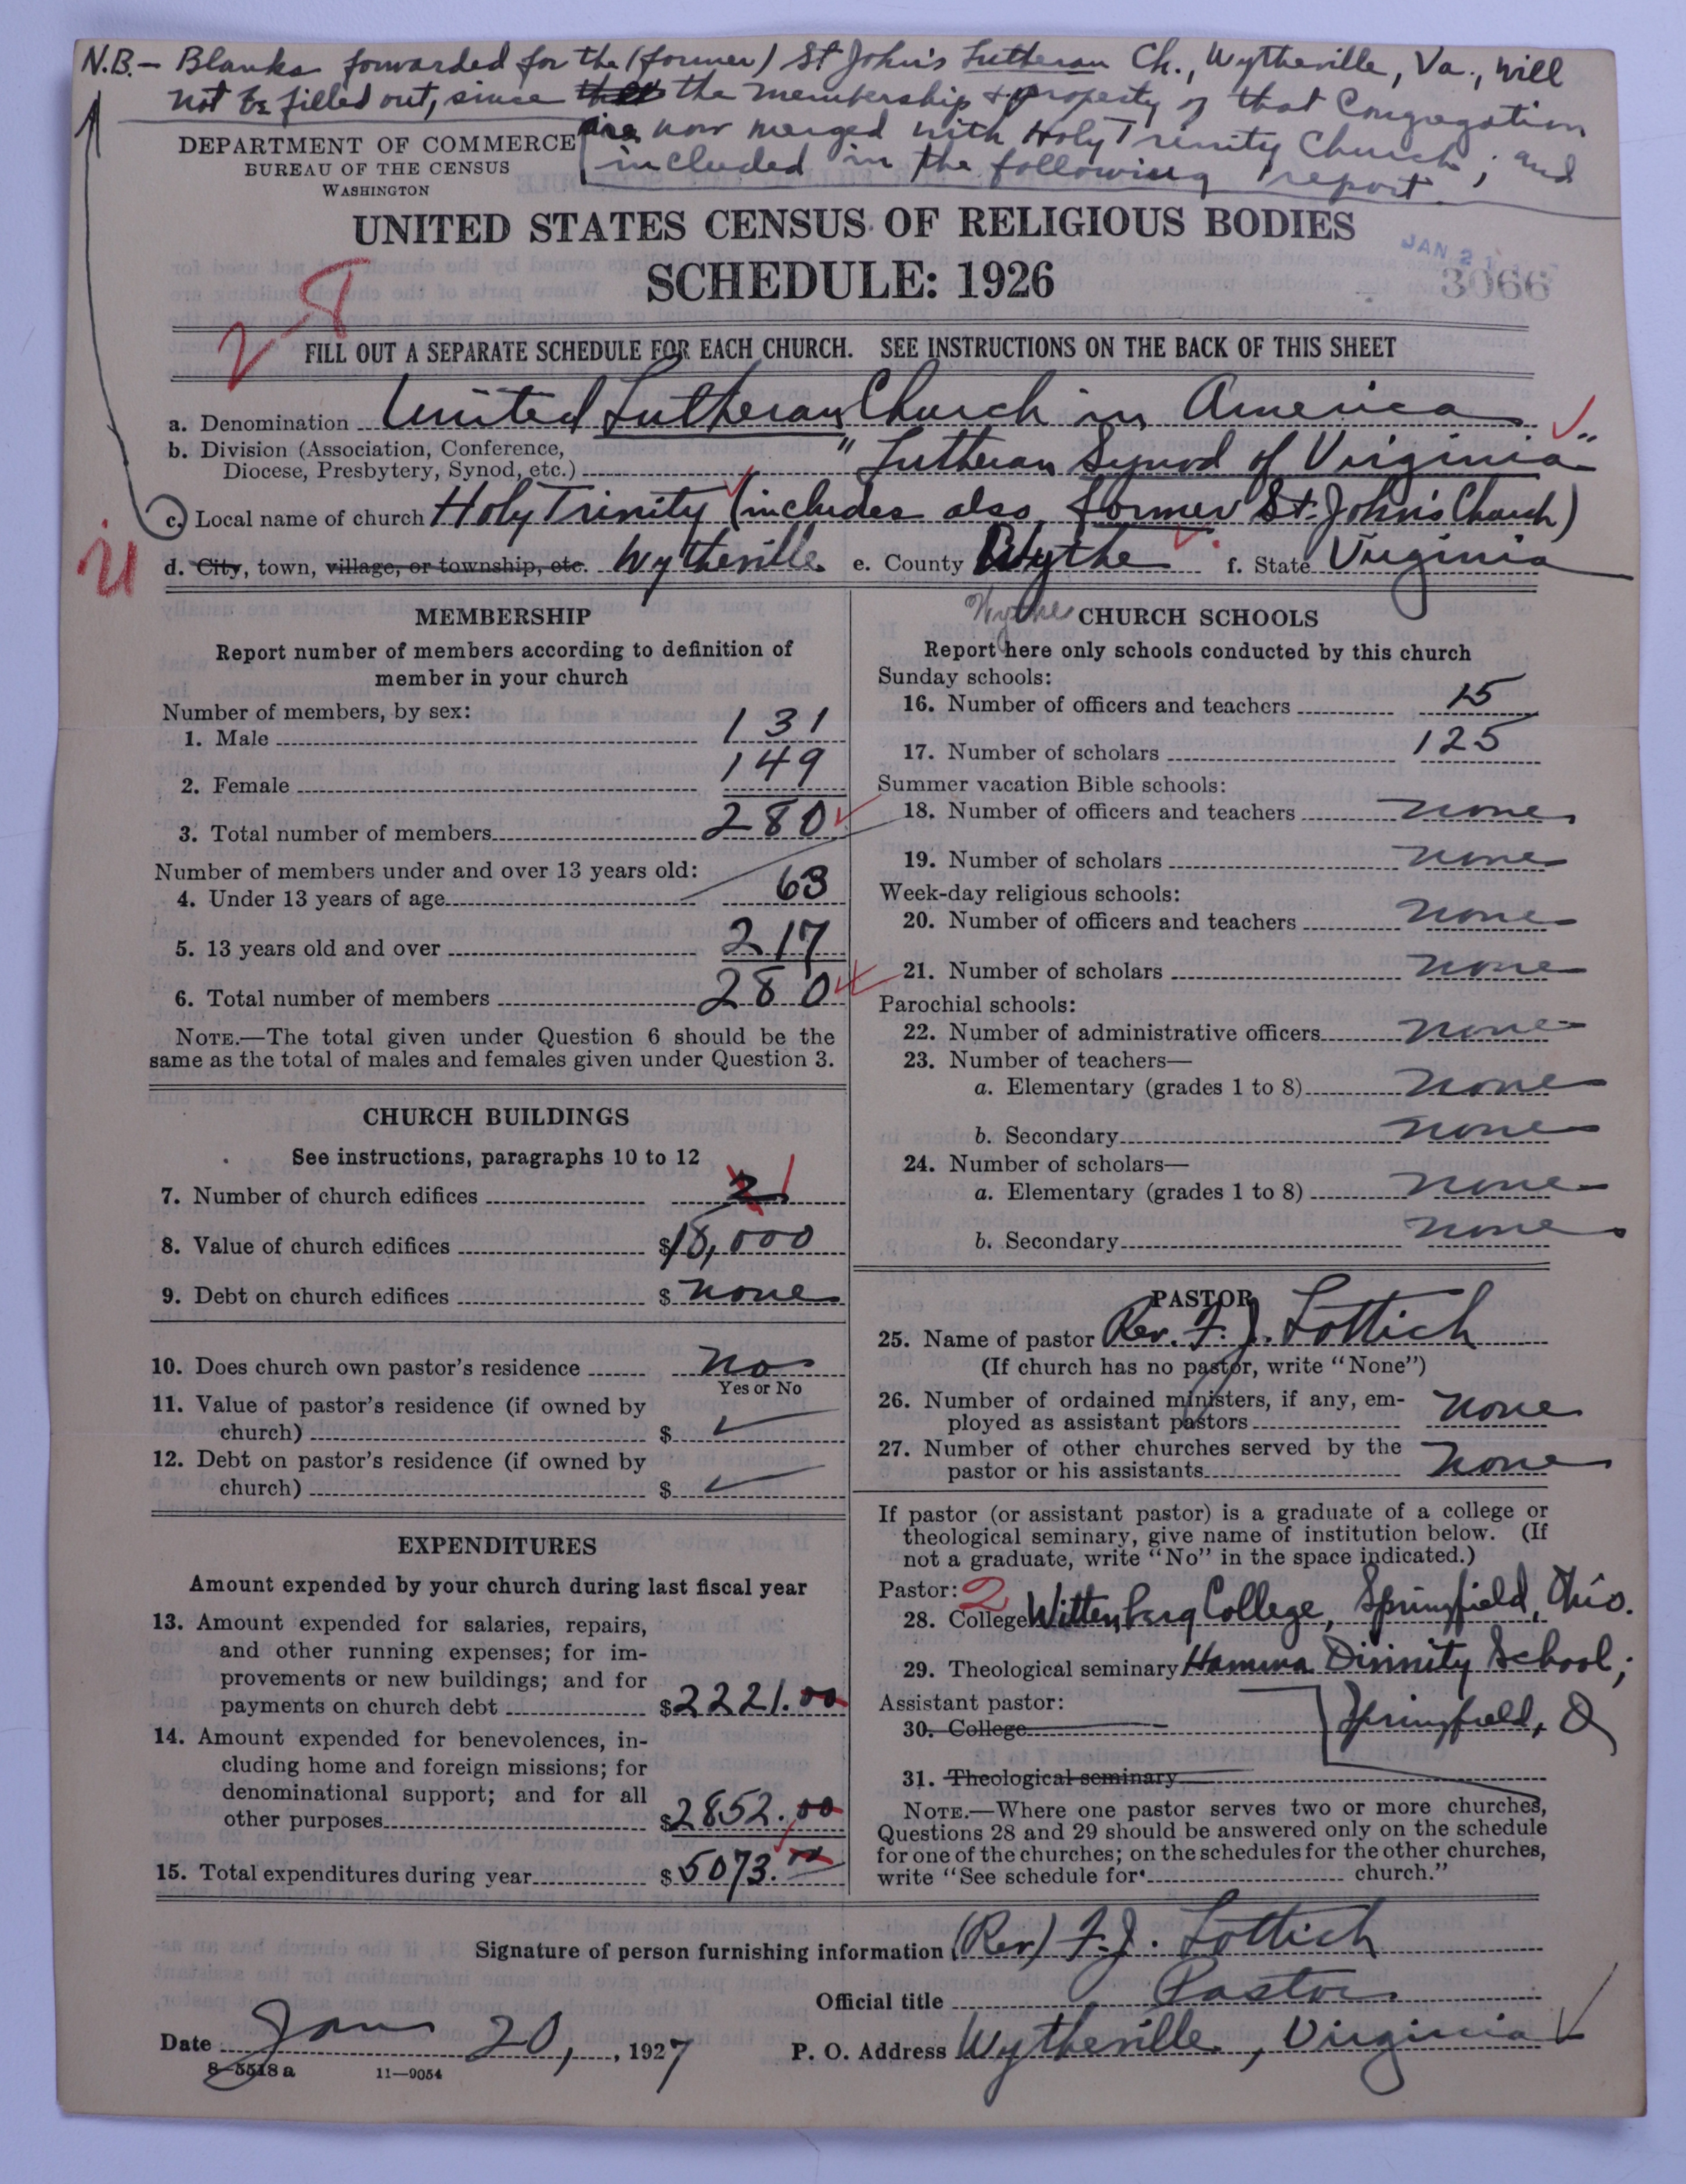 N.B. - Blanks forwarded for the (former) St John's Lutheran Ch., Wytheville, Va., will
not be filled out, since the membership & property of that Congregation
are now merged with Holy Trinity Church; and
included in the following report.
DEPARTMENT OF COMMERCE
BUREAU OF THE CENSUS
WASHINGTON
UNITED STATES CENSUS OF RELIGIOUS BODIES
SCHEDULE: 1926
JAN 21
3066
28
FILL OUT A SEPARATE SCHEDULE FOR EACH CHURCH. SEE INSTRUCTIONS ON THE BACK OF THIS SHEET
a. Denomination United Lutheran Church in America
b. Division (Association, Conference,
Diocese, Presbytery, Synod, etc.) "Lutheran Synod of Virginia"
c. Local name of church Holy Trinity (includes also former St. John's Church)
d. City, town, village, or township, etc. Wytheville e. County Wythe f. State Virginia
Wythe
MEMBERSHIP
Report number of members according to definition of
member in your church
Number of members, by sex:
1. Male 131
2. Female 149
3. Total number of members 280
Number of members under and over 13 years old:
4. Under 13 years of age 63
5. 13 years old and over 217
6. Total number of members 280
NOTE.—The total given under Question 6 should be the
same as the total of males and females given under Question 3.
CHURCH BUILDINGS
See instructions, paragraphs 10 to 12
7. Number of church edifices 2 1
8. Value of church edifices $18,000
9. Debt on church edifices $ none
10. Does church own pastor's residence no
Yes or No
11. Value of pastor's residence (if owned by
church) $
12. Debt on pastor's residence (if owned by
church) $
EXPENDITURES
Amount expended by your church during last fiscal year
13. Amount expended for salaries, repairs,
and other running expenses; for im-
provements or new buildings; and for
payments on church debt $2221.00
14. Amount expended for benevolences, in-
cluding home and foreign missions; for
denominational support; and for all
other purposes $2852.00
15. Total expenditures during year $5073.00
CHURCH SCHOOLS
Report here only schools conducted by this church
Sunday schools:
16. Number of officers and teachers 15
17. Number of scholars 125
Summer vacation Bible schools:
18. Number of officers and teachers none
19. Number of scholars none
Week-day religious schools:
20. Number of officers and teachers none
21. Number of scholars none
Parochial schools:
22. Number of administrative officers none
23. Number of teachers—
a. Elementary (grades 1 to 8) none
b. Secondary none
24. Number of scholars—
a. Elementary (grades 1 to 8) none
b. Secondary none
PASTOR
25. Name of pastor Rev. F. J. Lottich
(If church has no pastor, write "None")
26. Number of ordained ministers, if any, em-
ployed as assistant pastors none
27. Number of other churches served by the
pastor or his assistants none
If pastor (or assistant pastor) is a graduate of a college or
theological seminary, give name of institution below. (If
not a graduate, write "No" in the space indicated.)
Pastor: 2
28. College Wittenberg College, Springfield, Ohio.
29. Theological seminary Hamma Divinity School;
Assistant pastor: Springfield, O
30. College
31. Theological seminary
NOTE.—Where one pastor serves two or more churches,
Questions 28 and 29 should be answered only on the schedule
for one of the churches; on the schedules for the other churches,
write "See schedule for church."
Signature of person furnishing information (Rev) F. J. Lottich
Official title Pastor
Date Jan 20, 1927 P. O. Address Wytheville, Virginia
8-5518a 11—9054